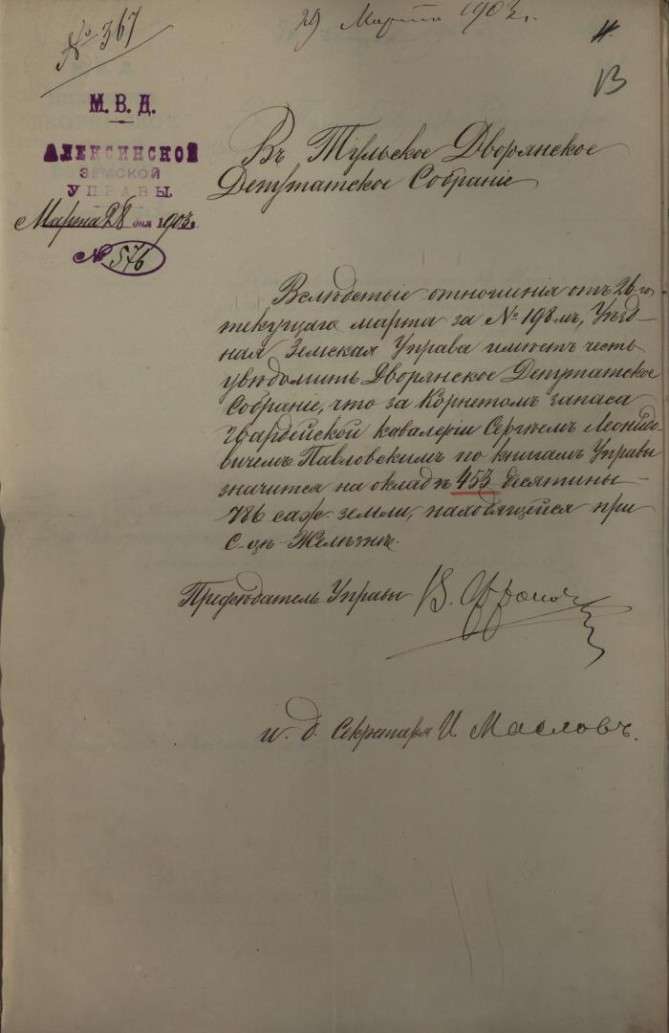 № 367
29 Марта 1903 г.
13
М. В. Д.
АЛЕКСИНСКОЙ
ЗЕМСКОЙ
УПРАВЫ
Марта 28 дня 1903 г.
№ 576
Въ Тульское Дворянское
Депутатское Собраніе
Вслѣдствіе отношенія отъ 26 го
текущаго марта за № 198мъ, Уѣзд-
ная Земская Управа имѣетъ честь
увѣдомить Дворянское Депутатское
Собраніе, что за Корнетомъ запаса
Гвардейской кавалеріи Сергѣемъ Леонидо-
вичемъ Павловскимъ по книгамъ Управы
значится на окладѣ 453 десятины
786 саж. земли, находящейся при
С-цѣ Желѣзнѣ.
Предсѣдатель Управы
и. д. Секретаря И Масловъ.